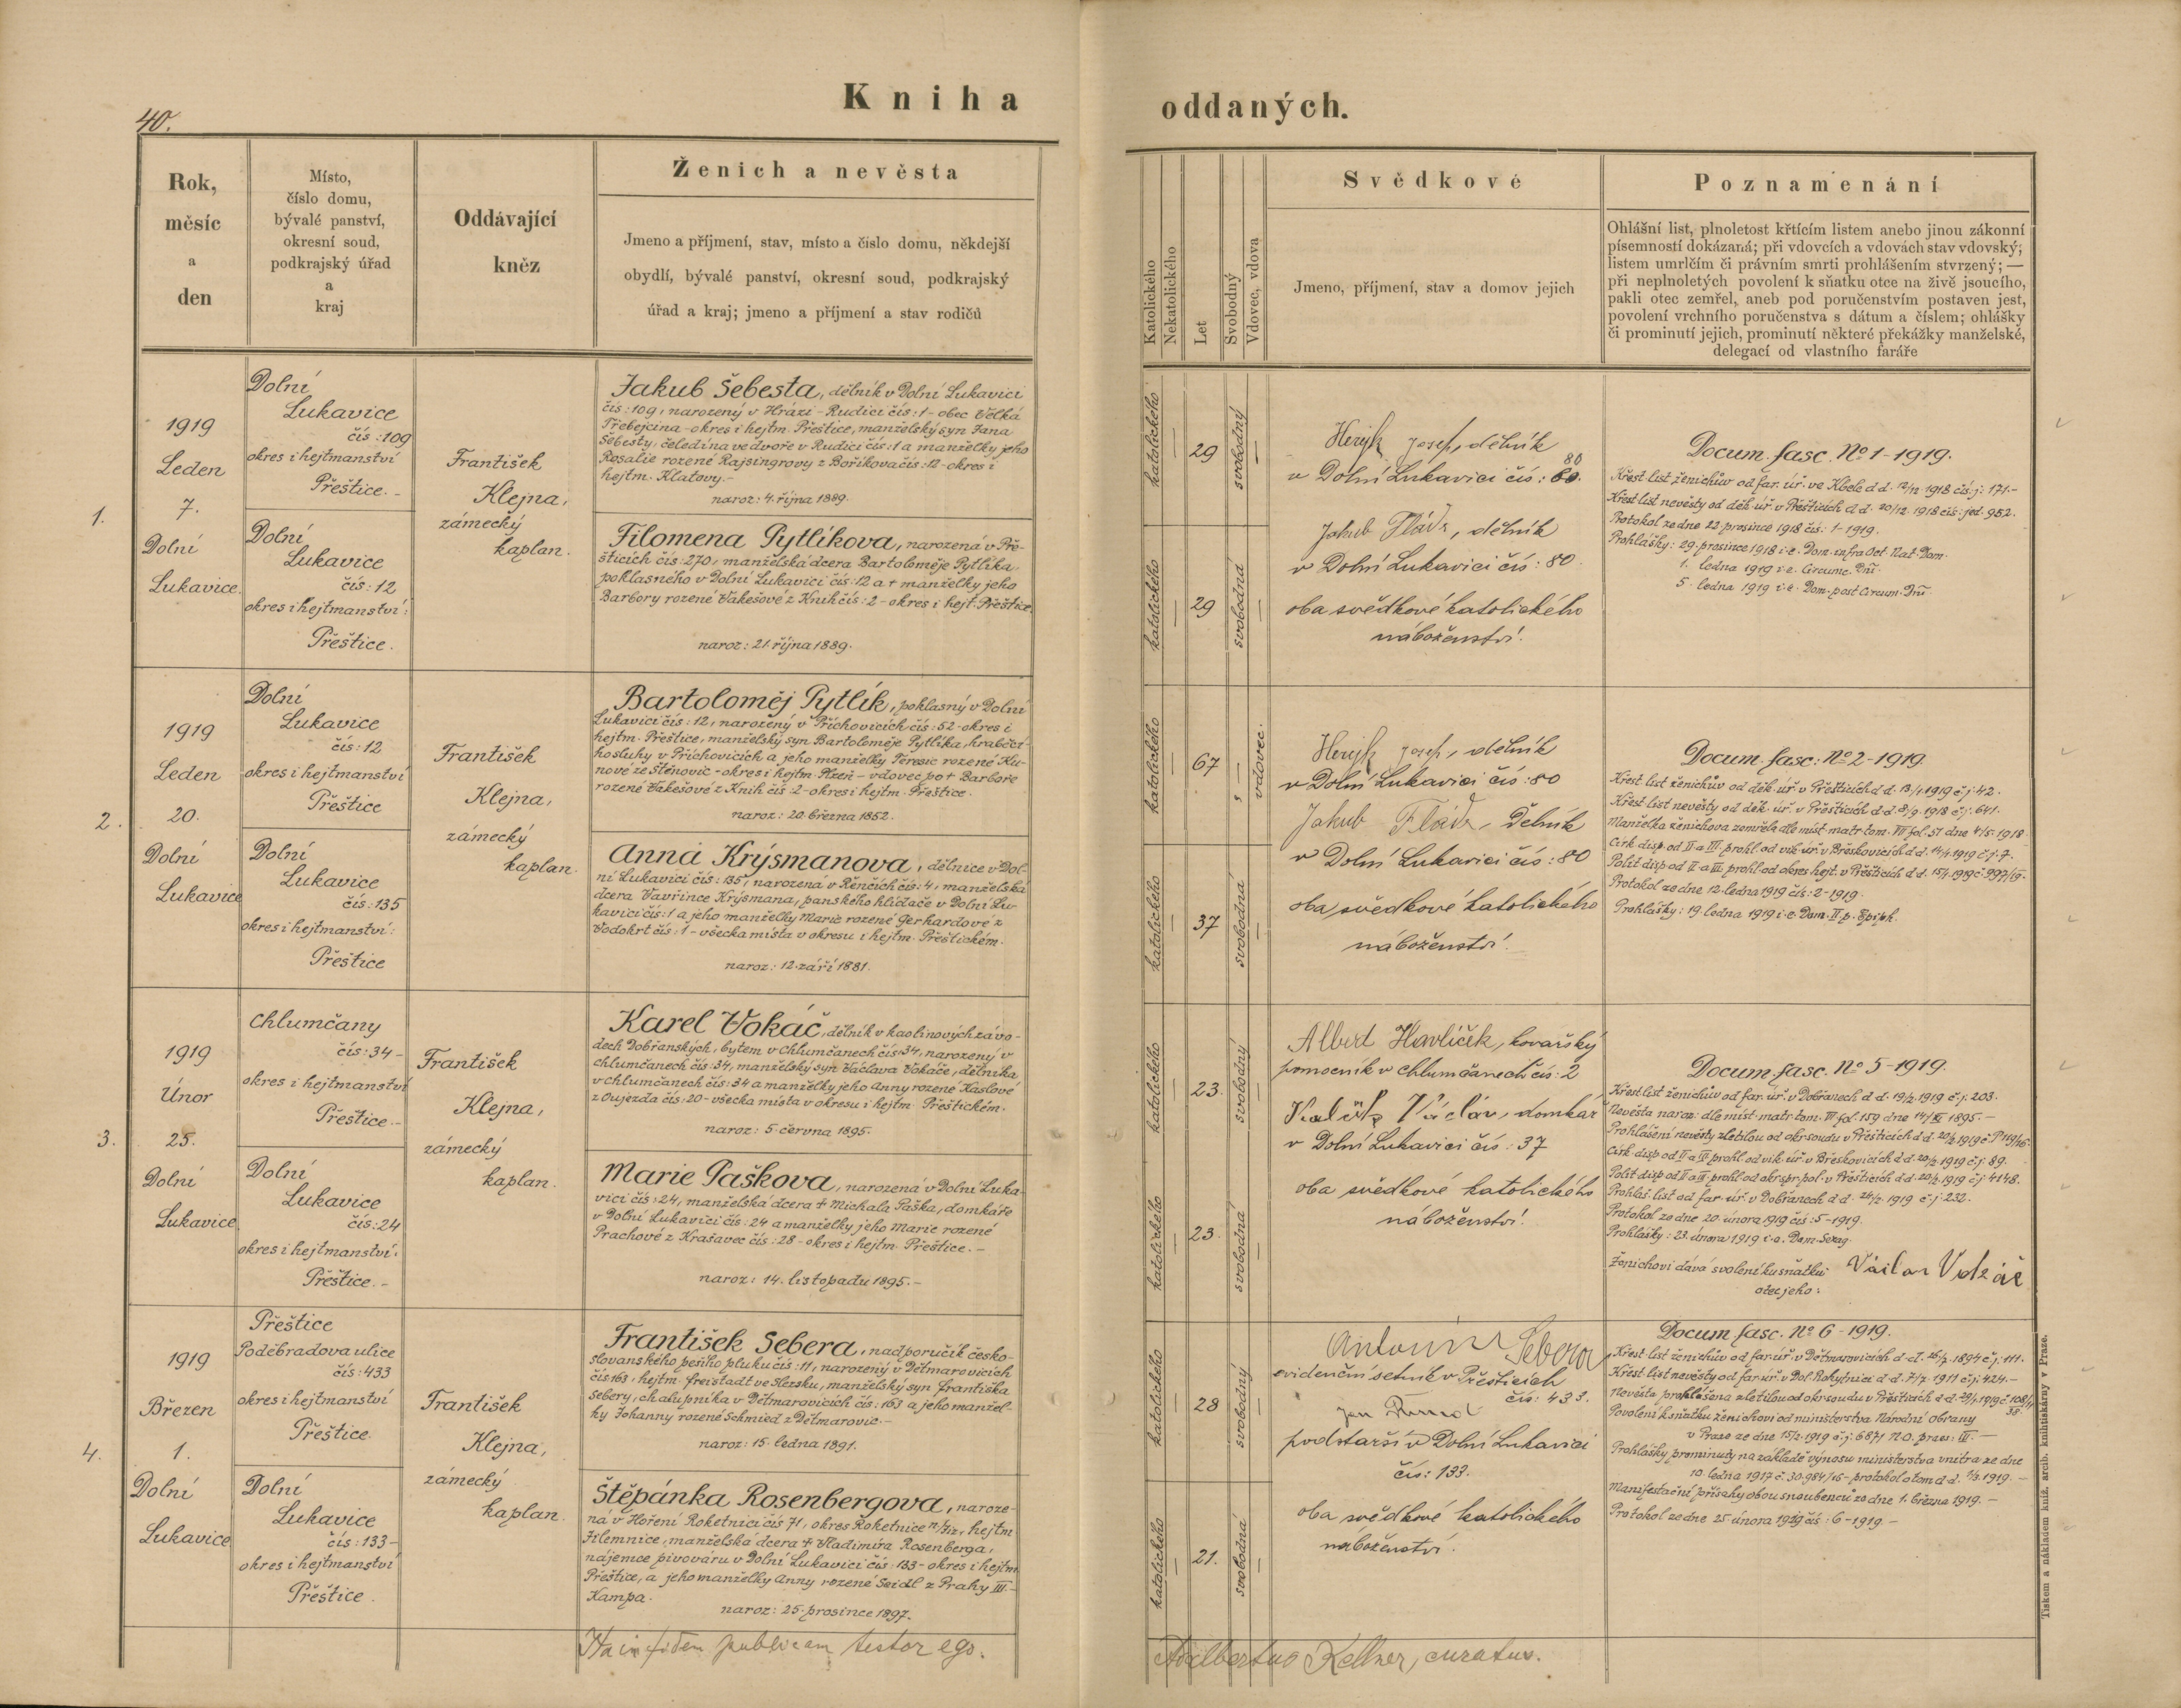 40.
Kniha oddaných.
Rok,
měsíc
a
den
Místo,
číslo domu,
bývalé panství,
okresní soud,
podkrajský úřad
a
kraj
Oddávající
kněz
Ženich a nevěsta
Jmeno a příjmení, stav, místo a číslo domu, někdejší
obydlí, bývalé panství, okresní soud, podkrajský
úřad a kraj; jmeno a příjmení a stav rodičů
Katolického
Nekatolického
Let
Svobodný
Vdovec, vdova
Svědkové
Jmeno, příjmení, stav a domov jejich
Poznamenání
Ohlášní list, plnoletost křtícím listem anebo jinou zákonní
písemností dokázaná; při vdovcích a vdovách stav vdovský,
listem umrlčím či právním smrti prohlášením stvrzený; —
při neplnoletých povolení k sňatku otce na živě jsoucího,
pakli otec zemřel, aneb pod poručenstvím postaven jest,
povolení vrchního poručenstva s dátum a číslem; ohlášky
či prominutí jejich, prominutí některé překážky manželské,
delegací od vlastního faráře
1.
1919
Leden
7.
Dolní
Lukavice.
Dolní
Lukavice
čís: 109
okres i hejtmanství
Přeštice.-
Dolní
Lukavice
čís: 12
okres i hejtmanství:
Přeštice.
František
Klejna,
zámecký
kaplan.
Jakub Šebesta, dělník v Dolní Lukavici
čís: 109, narozený v Hrázi - Rudici čís: 1 - obec Velká
Třebejcina - okres i hejtm. Přeštice, manželský syn Jana
Šebesty, čeledína ve dvoře v Rudici čís: 1 a manželky jeho
Rosalie rozené Rajsingrovy z Boříkova čís: 12 - okres i
hejtm. Klatovy.-
naroz: 4. října 1889.
Filomena Pytlíkova, narozená v Pře-
šticích čís: 270, manželská dcera Bartoloměje Pytlíka,
poklasného v Dolní Lukavici čís: 12 a † manželky jeho
Barbory rozené Vakešové z Knih čís: 2 - okres i hejt. Přeštice
naroz: 21. října 1889.
katolického
29
svobodný
katolického
29
svobodná
Josef, dělník
v Dolní Lukavici čís: 80.
Jakub, dělník
v Dolní Lukavici čís: 80
oba svědkové katolického
náboženství.
Docum. fasc. No 1-1919.
Křest. list ženichův od far. úř. ve Kbele d d. 12/12 1918 čís: j: 171.-
Křest list nevěsty od děk. úř. v Přešticích d. d. 20/12. 1918 čís: jed. 952.
Protokol ze dne 22. prosince 1918 čís: 1-1919.
Prohlášky: 29. prosince 1918 i. e. Dom. infra Oct. Nat. Dom.
1. ledna 1919 i. e. Circumc. Dni.
5. ledna 1919 i. e. Dom. post Circum. Dni
2.
1919
Leden
20.
Dolní
Lukavice
Dolní
Lukavice
čís: 12
okres i hejtmanství
Přeštice
Dolní
Lukavice
čís: 135
okres i hejtmanství:
Přeštice
František
Klejna,
zámecký
kaplan.
Bartoloměj Pytlík, poklasný v Dolní
Lukavici čís: 12, narozený v Příchovicích čís: 52 - okres i
hejtm. Přeštice, manželský syn Bartoloměje Pytlíka, hraběcí-
ho sluhy v Příchovicích a jeho manželky Teresie rozené Ku-
nové ze Štěnovic - okres i hejtm. Plzeň - vdovec po † Barboře
rozené Vakešové z Knih čís: 2 - okres i hejtm. Přeštice.
naroz: 20. března 1852.
Anna Krýsmanova, dělnice v Dol-
ní Lukavici čís: 135, narozená v Řenčích čís: 4, manželská
dcera Vavřince Krýsmana, panského hlídače v Dolní Lu-
kavici čís: 1 a jeho manželky Marie rozené Gerhardové z
Vodokrt čís: 1 - všecka místa v okresu i hejtm. Přeštickém.
naroz: 12. září 1881.
katolického
67
vdovec.
katolického
37
svobodná
Josef, dělník
v Dolní Lukavici čís: 80
Jakub, dělník
v Dolní Lukavici čís: 80
oba svědkové katolického
náboženství.
Docum. fasc: No 2-1919.
Křest list ženichův od děk. úř. v Přešticích d d. 13/1 1919 č j: 42.
Křest list nevěsty od děk. úř. v Přešticích d. d. 8/9. 1918 č. j: 641.
Manželka ženichova zemřela dle míst. matr. tom. VII fol. 57 dne 4/5. 1918.
Círk. disp. od II a III. prohl. od vik. úř. v Břeskovicích d d. 14/1 1919 č. j. 7.
Polit. disp. od II. a III. prohl. od okres hejt. v Přešticích d d. 15/1. 1919 č. 997/19.
Protokol ze dne 12. ledna 1919 čís: 2-1919.
Prohlášky: 19. ledna 1919 i. e. Dom. II. p. Epiph.
3.
1919
Únor
25.
Dolní
Lukavice
Chlumčany
čís: 34 -
okres i hejtmanství
Přeštice.-
Dolní
Lukavice
čís: 24
okres i hejtmanství.
Přeštice.-
František
Klejna,
zámecký
kaplan.
Karel Vokáč, dělník v kaolinových závo-
dech Dobřanských, bytem v Chlumčanech čís: 34, narozený v
Chlumčanech čís: 34, manželský syn Václava Vokáče, dělníka
v Chlumčanech čís: 34 a manželky jeho Anny rozené Haslové
z Oujezda čís: 20 - všecka místa v okresu i hejtm. Přeštickém.
naroz: 5. června 1895.
Marie Paškova, narozená v Dolní Luka-
vici čís: 24, manželská dcera † Michala Paška, domkáře
v Dolní Lukavici čís: 24 a manželky jeho Marie rozené
Prachové z Krašavec čís: 28 - okres i hejtm. Přeštice.-
naroz: 14. listopadu 1895.-
katolického
23.
svobodný
katolického
23.
svobodná
Albert Havlíček, kovařský
pomocník v Chlumčanech čís: 2
Václav, domkář
v Dolní Lukavici čís: 37
oba svědkové katolického
náboženství.
Docum. fasc. No 5-1919.
Křest list ženichův od far. úř. v Dobřanech d d. 19/2. 1919 č. j. 203.
Nevěsta naroz: dle míst. matr. tom. III fol. 159 dne 14/XI 1895.-
Prohlášení nevěsty zletilou od okr. soudu v Přešticích d d. 20/2. 1919 č. P 119/16.
Círk. disp. od II a III prohl. od vik. úř. v Břeskovicích d d. 20/2. 1919 č. j: 89.
Polit. disp. od II a III prohl. od okr. spr. pol. v Přešticích d d. 20/2. 1919 č j: 4148.
Prohlaš. list od far. úř. v Dobřanech d d. 24/2. 1919 č j: 232.
Protokol ze dne 20. února 1919 čís: 5-1919.
Prohlášky: 23. února 1919 i. e. Dom. Sexag.
Ženichovi dává svolení ku sňatku
otec jeho: Václav Vokáč
4.
1919
Březen
1.
Dolní
Lukavice
Přeštice
Poděbradova ulice
čís: 433
okres i hejtmanství
Přeštice.
Dolní
Lukavice
čís: 133 -
okres i hejtmanství
Přeštice.
František
Klejna,
zámecký
kaplan.
František Sebera, nadporučík česko-
slovanského pěšího pluku čís: 11, narozený v Dětmarovicích
čís: 163, hejtm. Freistadt ve Slezsku, manželský syn Františka
Sebery, chalupníka v Dětmarovicích čís: 163 a jeho manžel-
ky Johanny rozené Schmied z Dětmarovic.-
naroz: 15. ledna 1891.
Štěpánka Rosenbergova, naroze-
ná v Hoření Roketnici čís 71, okres Roketnice n/Jiz., hejtm
Jilemnice, manželská dcera † Vladimíra Rosenberga,
nájemce pivovaru v Dolní Lukavici čís: 133 - okres i hejtm.
Přeštice, a jeho manželky Anny rozené Seidl z Prahy III.-
Kampa.
naroz: 25. prosince 1897.
katolického
28
svobodný
katolického
21.
svobodná
Antonín Sebera,
evidenční setník v Přešticích
čís: 433.
Jan
podstarší v Dolní Lukavici
čís: 133.
oba svědkové katolického
náboženství.
Docum fasc. No 6-1919.
Křest list ženichův od far. úř. v Dětmarovicích d d. 26/2. 1894 č j: 111.
Křest list nevěsty od far. úř. v Dol. Rokytnici d d. 7/7. 1911 č j: 424.-
Nevěsta prohlášena zletilou od okr. soudu v Přešticích d d.
Povolení k sňatku ženichovi od ministerstva Národní Obrany
v Praze ze dne 15/2. 1919 č. j: 6871 N.O. praes: III.-
Prohlášky prominuty na základě výnosu ministerstva vnitra ze dne
10. ledna 1917 č. 30.984/16 - protokol o tom d d. 1/3. 1919.-
Manifestační přísahy obou snoubenců ze dne 1. března 1919.-
Protokol ze dne 25. února 1919 čís: 6-1919.-
Ita in fidem publicam testor ego.
Adalbertus Kellner, curatus.
Tiskem a nákladem kníž. arcib. knihtiskárny v Praze.